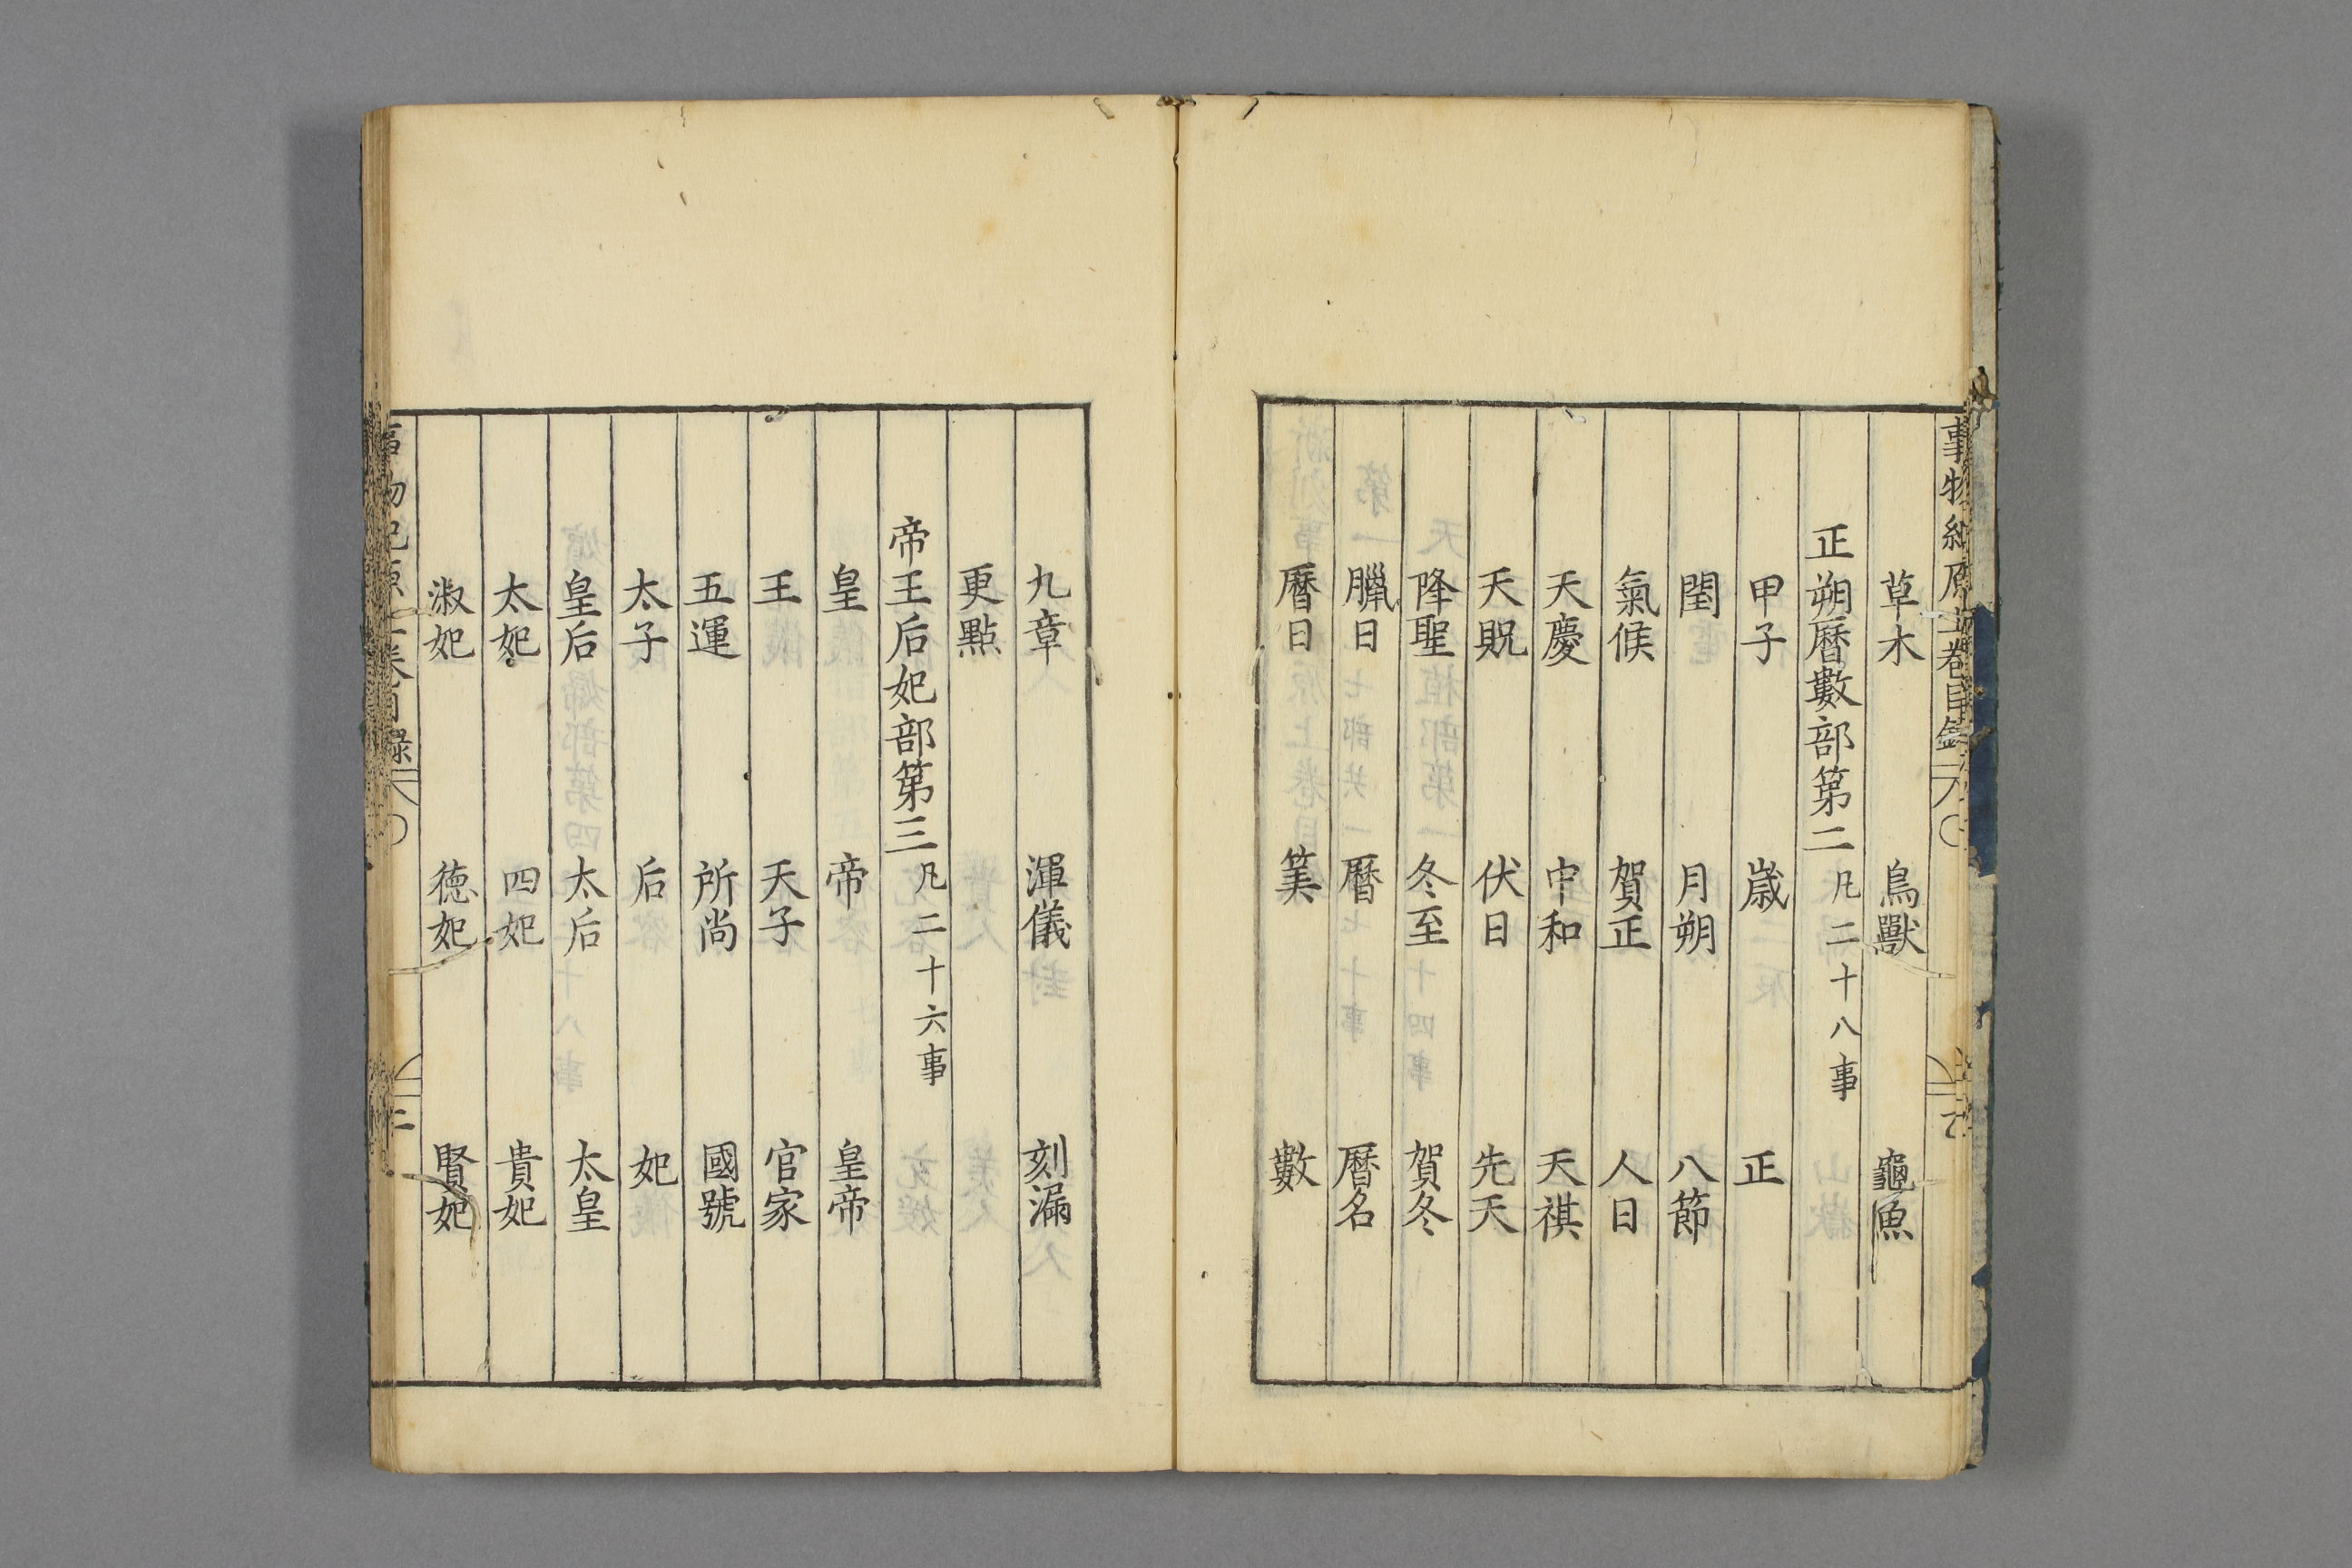 事物紀原上卷目錄
草木 鳥獸 龜魚
正朔曆數部第二 凡二十八事
甲子 歲 正
閏 月朔 八節
氣候 賀正 人日
天慶 中和 天祺
天貺 伏日 先天
降聖 冬至 賀冬
臘日 曆 曆名
曆日 筭 數
九章 渾儀 刻漏
更點
帝王后妃部第三 凡二十六事
皇 帝 皇帝
王 天子 官家
五運 所尚 國號
太子 后 妃
皇后 太后 太皇
太妃 四妃 貴妃
淑妃 德妃 賢妃
事物紀原上卷目録 二